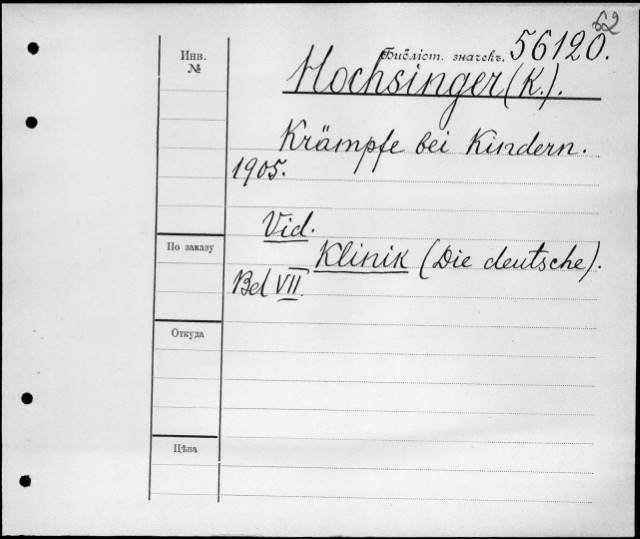 62
Инв. №
Библіот. значекъ. 56120.
Hochsinger (K.).
Krämpfe bei Kindern.
1905.
Vid.
По заказу
Klinik (Die deutsche).
Bd VII.
Откуда
Цѣна